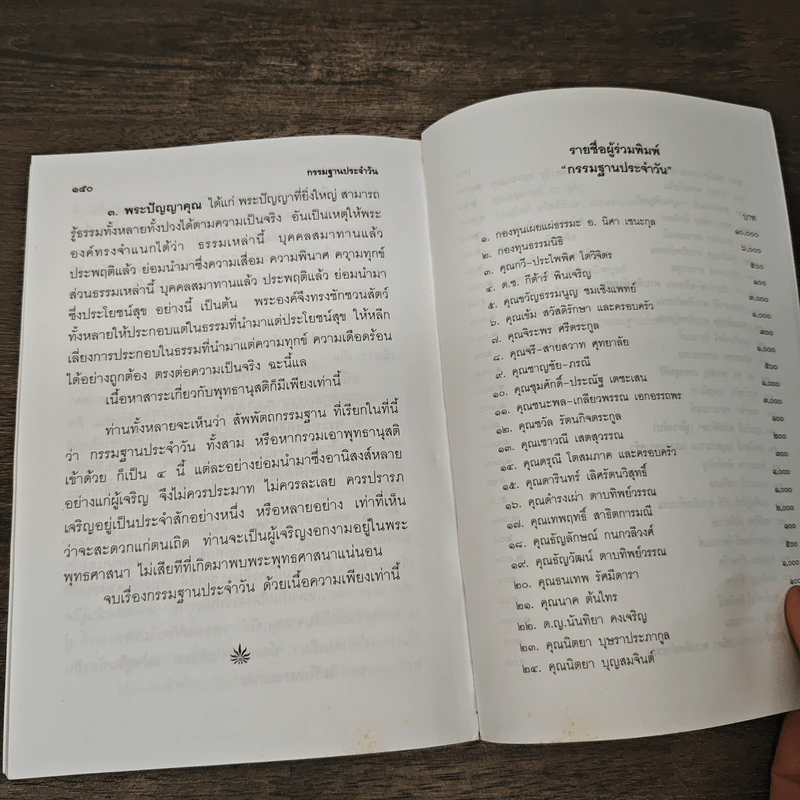 ๑๕๐
กรรมฐานประจำวัน
๓. พระปัญญาคุณ ได้แก่ พระปัญญาที่ยิ่งใหญ่ สามารถ
รู้ธรรมทั้งหลายทั้งปวงได้ตามความเป็นจริง อันเป็นเหตุให้พระ
องค์ทรงจำแนกได้ว่า ธรรมเหล่านี้ บุคคลสมาทานแล้ว
ประพฤติแล้ว ย่อมนำมาซึ่งความเสื่อม ความพินาศ ความทุกข์
ส่วนธรรมเหล่านี้ บุคคลสมาทานแล้ว ประพฤติแล้ว ย่อมนำมา
ซึ่งประโยชน์สุข อย่างนี้ เป็นต้น พระองค์จึงทรงชักชวนสัตว์
ทั้งหลายให้ประกอบแต่ในธรรมที่นำมาแต่ประโยชน์สุข ให้หลีก
เลี่ยงการประกอบในธรรมที่นำมาแต่ความทุกข์ ความเดือดร้อน
ได้อย่างถูกต้อง ตรงต่อความเป็นจริง ฉะนี้แล
เนื้อหาสาระเกี่ยวกับพุทธานุสติก็มีเพียงเท่านี้
ท่านทั้งหลายจะเห็นว่า สัพพัตถกรรมฐาน ที่เรียกในที่นี้
ว่า กรรมฐานประจำวัน ทั้งสาม หรือหากรวมเอาพุทธานุสติ
เข้าด้วย ก็เป็น ๔ นี้ แต่ละอย่างย่อมนำมาซึ่งอานิสงส์หลาย
อย่างแก่ผู้เจริญ จึงไม่ควรประมาท ไม่ควรละเลย ควรปรารภ
เจริญอยู่เป็นประจำสักอย่างหนึ่ง หรือหลายอย่าง เท่าที่เห็น
ว่าจะสะดวกแก่ตนเถิด ท่านจะเป็นผู้เจริญงอกงามอยู่ในพระ
พุทธศาสนา ไม่เสียทีที่เกิดมาพบพระพุทธศาสนาแน่นอน
จบเรื่องกรรมฐานประจำวัน ด้วยเนื้อความเพียงเท่านี้
รายชื่อผู้ร่วมพิมพ์
"กรรมฐานประจำวัน"
บาท
๑. กองทุนเผยแผ่ธรรมะ อ. นิศา เชนะกุล ๑๐,๐๐๐
๒. กองทุนธรรมนิธิ ๖,๐๐๐
๓. คุณกวี-ประไพพิศ โตวิจิตร ๕๐๐
๔. ด.ช. กีต้าร์ พินเจริญ
๕. คุณขวัญธรรมนูญ ชมเชิงแพทย์
๖. คุณเข้ม สวัสดิรักษา และครอบครัว
๗. คุณจิระพร ศรีตระกูล
๘. คุณจรี-สายสวาท ศุทยาลัย
๙. คุณชาญชัย-ภรณี
๑๐. คุณชุมศักดิ์-ประณัฐ เดชะเสน
๑๑. คุณชนะพล-เกลียวพรรณ เอกอรรถพร
๑๒. คุณชวัล รัตนกิจตระกูล
๑๓. คุณเชาวณี เสตสุวรรณ
๑๔. คุณดรุณี โตสมภาค และครอบครัว
๑๕. คุณดารินทร์ เลิศรัตนวิสุทธิ์
๑๖. คุณดำรงเผ่า ตาบทิพย์วรรณ
๑๗. คุณเทพฤทธิ์ สาธิตการมณี
๑๘. คุณธัญลักษณ์ กนกวลีวงศ์
๑๙. คุณธัญวัฒน์ ตาบทิพย์วรรณ
๒๐. คุณธนเทพ รัศมีดารา
๒๑. คุณนาค ตันไทร
๒๒. ด.ญ.นันทิยา คงเจริญ
๒๓. คุณนิตยา บุษราประภากูล
๒๔. คุณนิตยา บุญสมจินต์